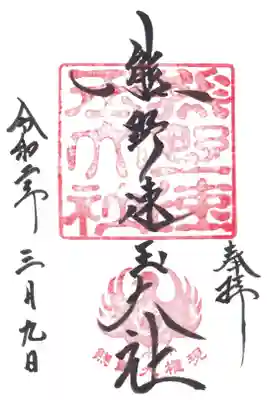 奉拝
熊野速玉大社
熊野速
玉大社
令和二年三月九日